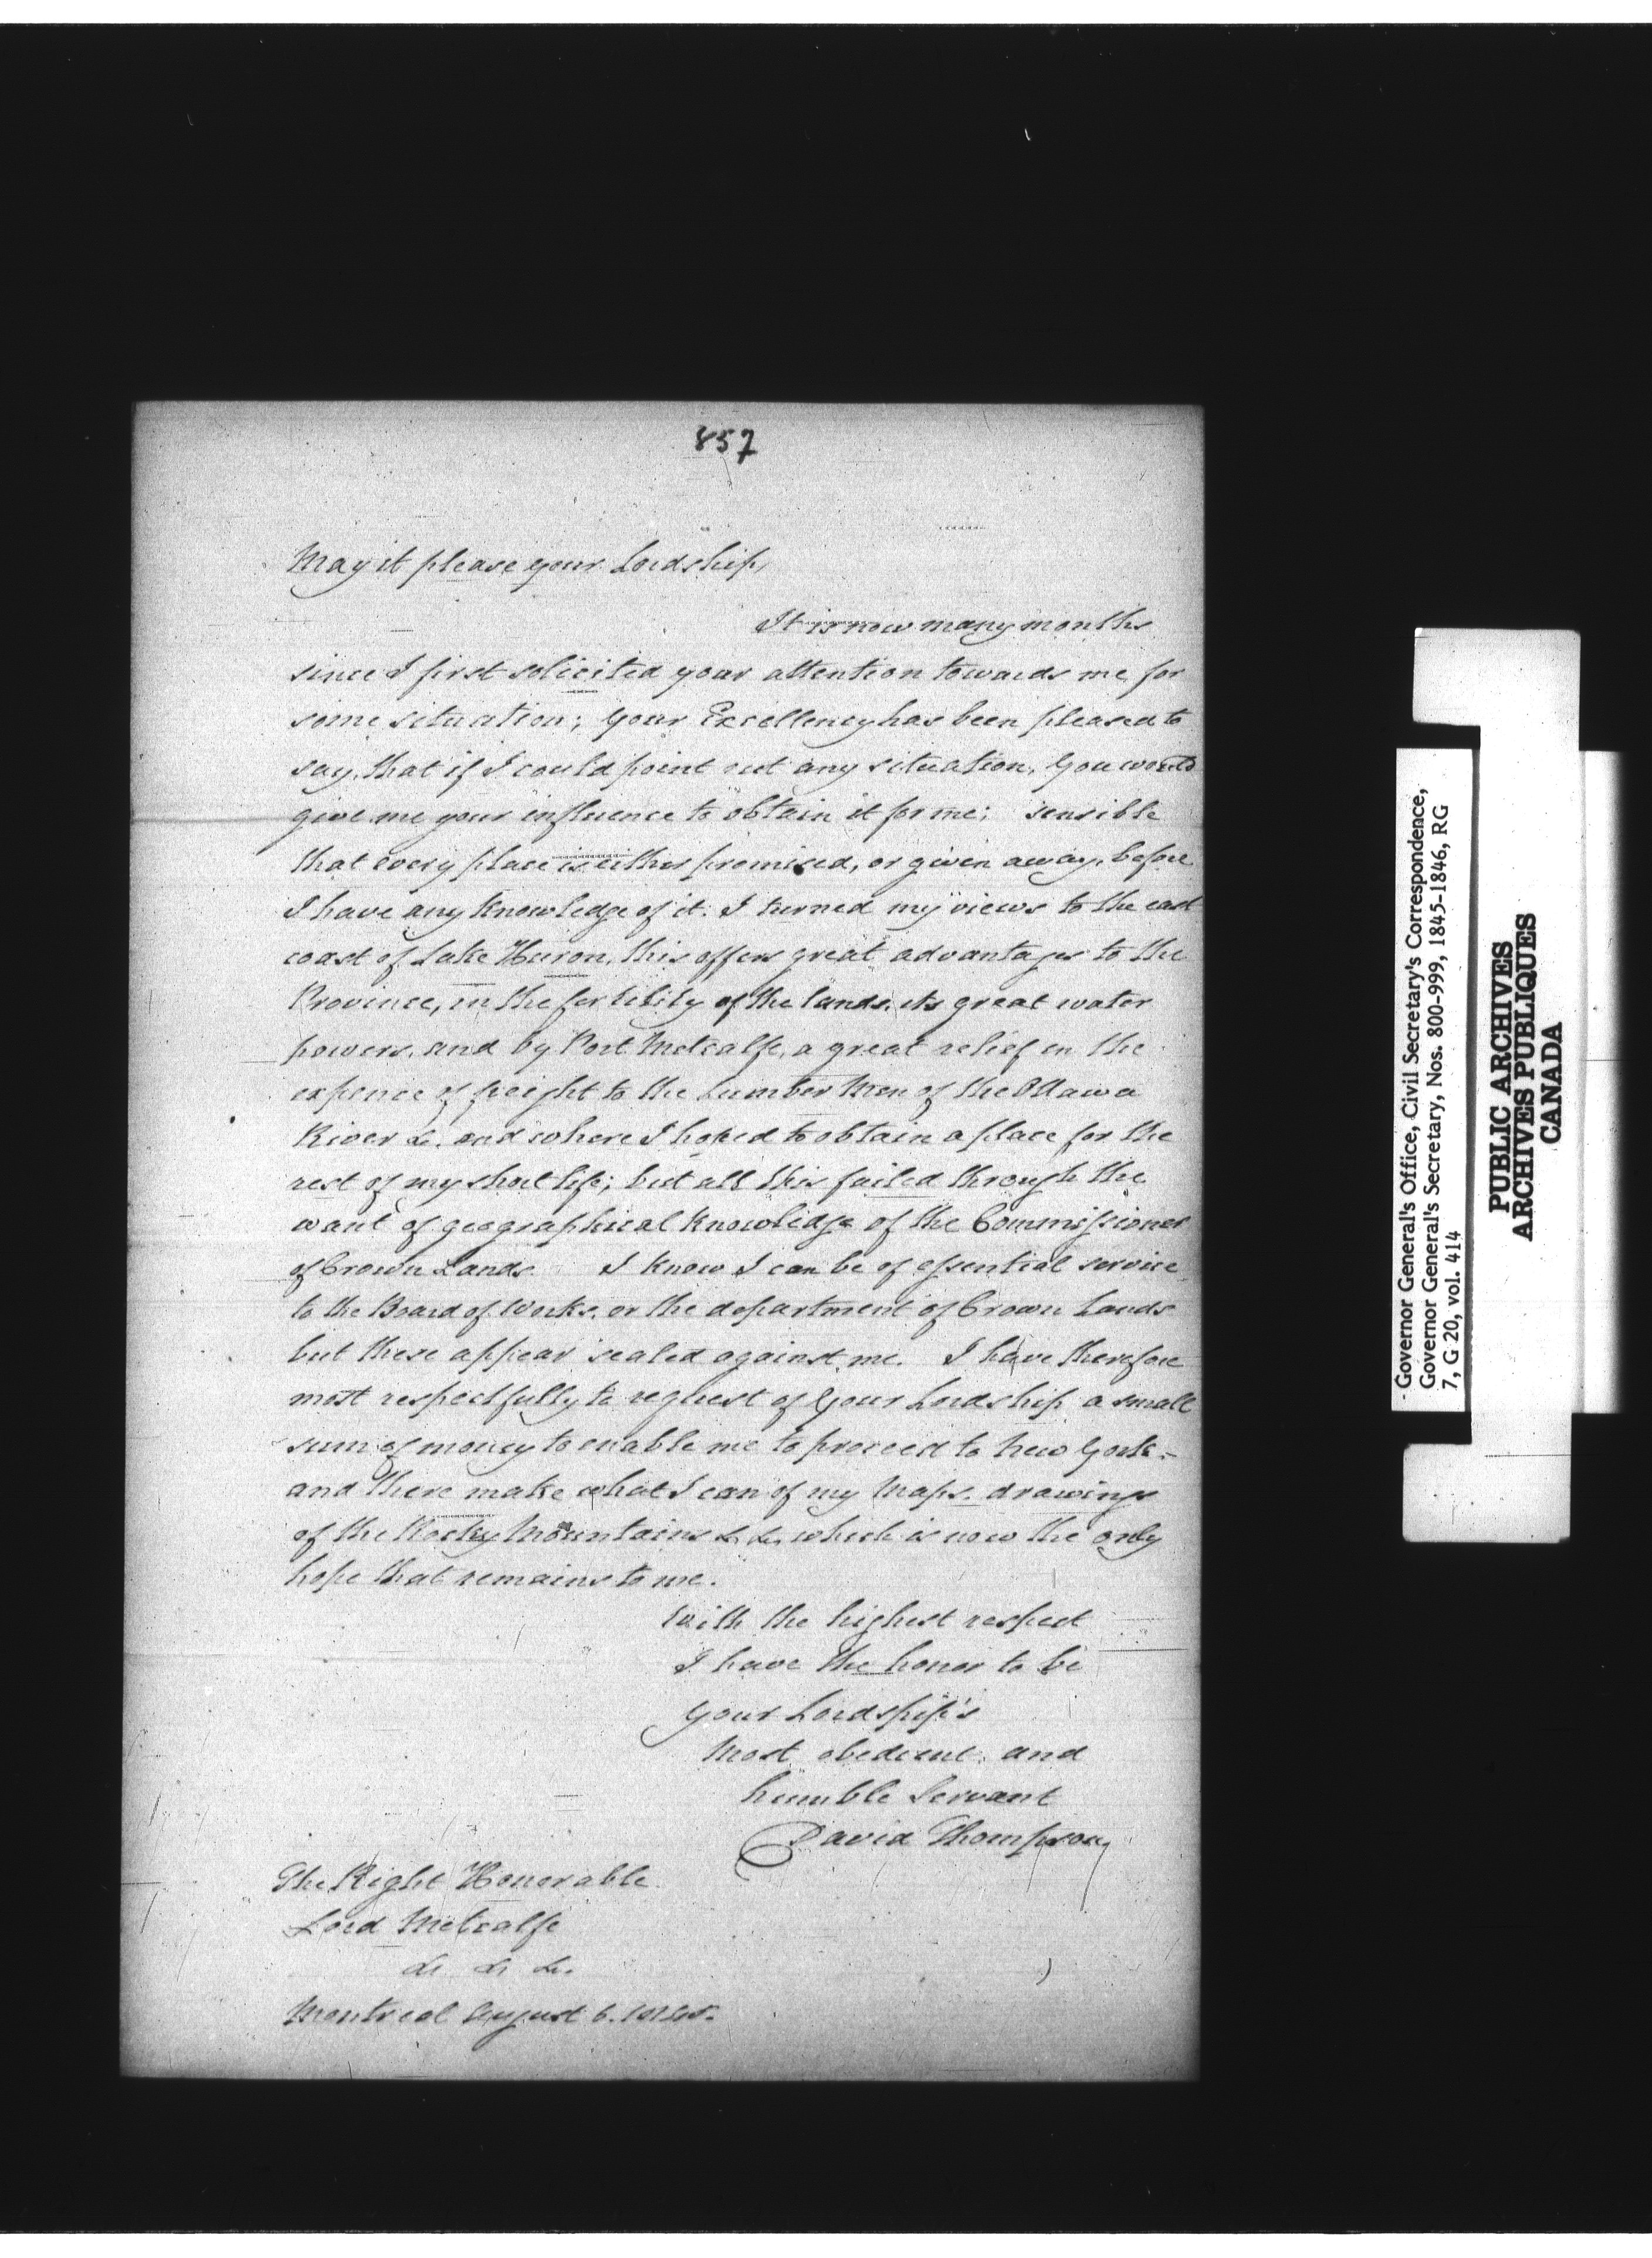 857
May it please your Lordship,
It is now many months
since I first solicited your attention towards me for
some situation; your Excellency has been pleased to
say, that if I could point out any situation, you would
give me your influence to obtain it for me; sensible
that every place is either promised, or given away, before
I have any knowledge of it. I turned my views to the east
coast of Lake Huron, this offers great advantages to the
Province, in the fertility of the lands, its great water
powers, and by Port Metcalfe, a great relief in the
expence of freight to the Lumber Men of the Ottawa
River &c. and where I hoped to obtain a place for the
rest of my short life; but all this failed through the
want of geographical knowledge of the Commissioner
of Crown Lands. I know I can be of essential service
to the Board of Works, or the department of Crown Lands
but these appear sealed against me. I have therefore
most respectfully to request of your Lordship a small
sum of money to enable me to proceed to New York -
and there make what I can of my Maps, drawings
of the Rocky Mountains &c &c, which is now the only
hope that remains to me.
With the highest respect
I have the honor to be
your Lordship's
Most obedient and
humble Servant
David Thompson
The Right Honorable
Lord Metcalfe
&c &c &c.
Montreal August 6. 1845.
Governor General's Office, Civil Secretary's Correspondence,
Governor General's Secretary, Nos. 800-999, 1845-1846, RG
7, G 20, vol. 414
PUBLIC ARCHIVES
ARCHIVES PUBLIQUES
CANADA